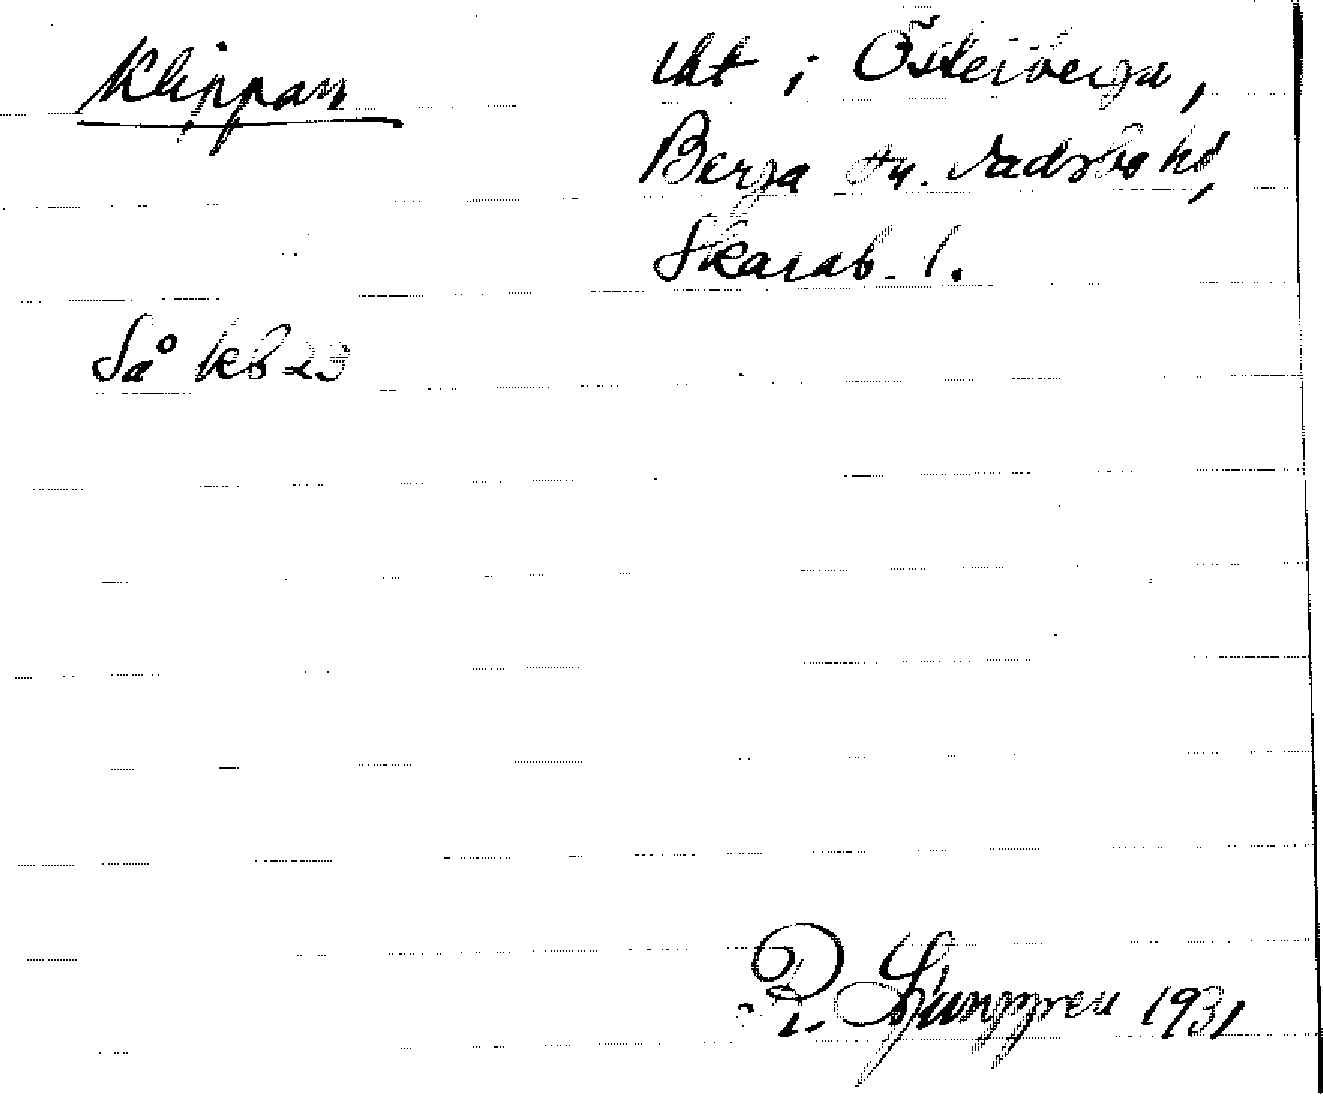 Klippan
lht i Österberga,
Berga sn. Vadsbo hd,
Skarab. l.
Så kb 23
R. Ljunggren 1931